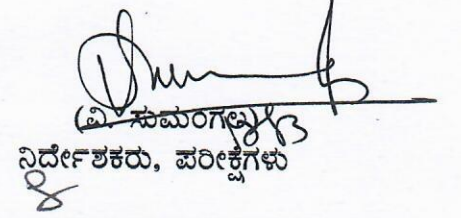 (ವಿ. ಸುಮಂಗಲ)
ನಿರ್ದೇಶಕರು, ಪರೀಕ್ಷೆಗಳು